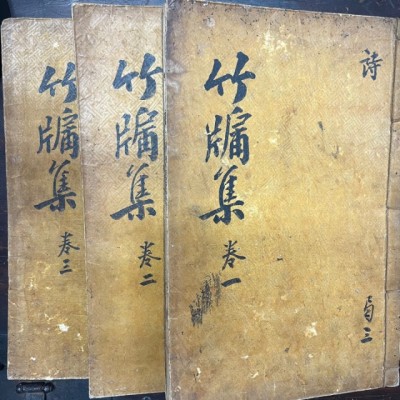 詩
三
竹牖集 卷一
竹牖集 卷二
竹牖集 卷三